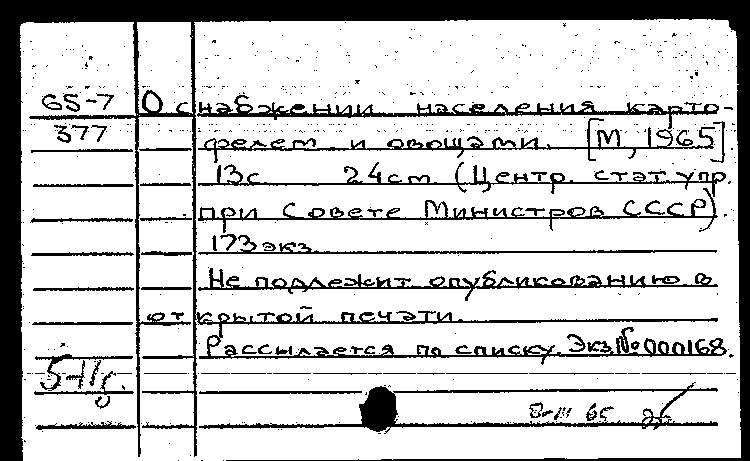 65-7
377
О снабжении населения карто-
фелем и овощами. [М, 1965]
13с 24см (Центр. стат. упр.
при Совете Министров СССР).
173 экз.
Не подлежит опубликованию в
открытой печати.
Рассылается по списку. Экз. № 000168.
8-III 65